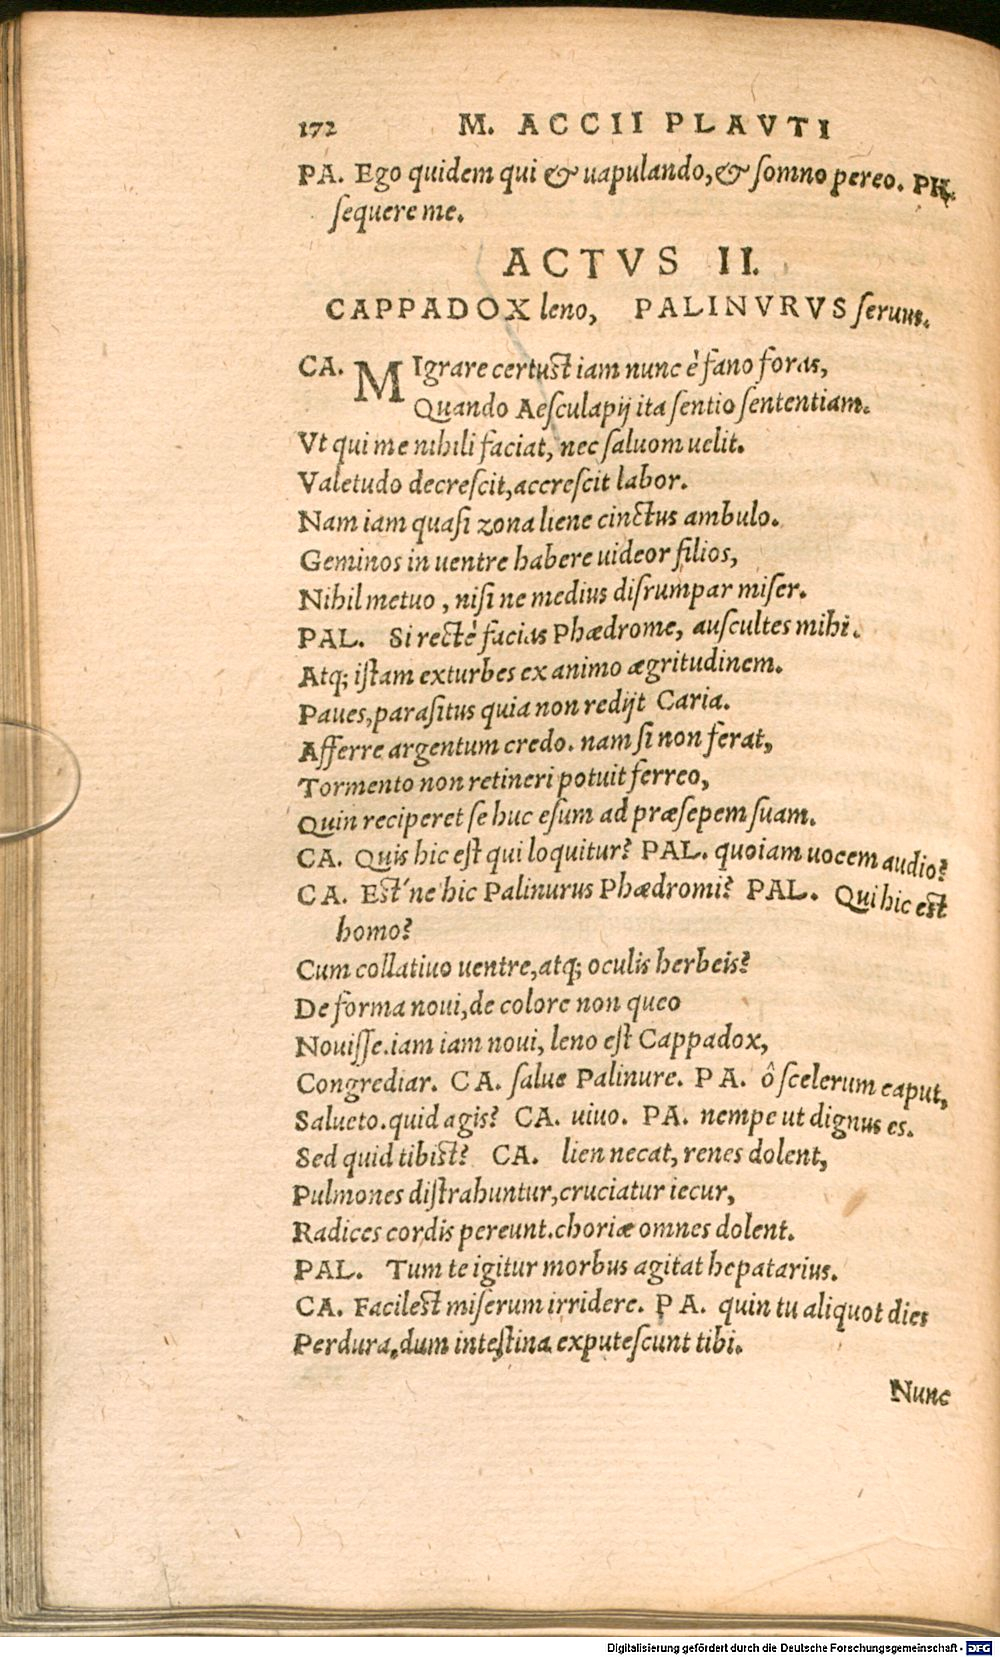 172 M. ACCII PLAVTI
PA. Ego quidem qui & uapulando, & ſomno pereo. PH.
ſequere me.
ACTVS II.
CAPPADOX leno, PALINVRVS ſeruus.
CA. MIgrare certuſt iam nunc è fano foras,
Quando Aeſculapij ita ſentio ſententiam.
Vt qui me nihili faciat, nec ſaluom uelit.
Valetudo decreſcit, accreſcit labor.
Nam iam quaſi zona liene cinctus ambulo.
Geminos in uentre habere uideor filios,
Nihil metuo, niſi ne medius diſrumpar miſer.
PAL. Si rectè facias Phædrome, auſcultes mihi.
Atq; iſtam exturbes ex animo ægritudinem.
Paues, paraſitus quia non redijt Caria.
Afferre argentum credo. nam ſi non ferat,
Tormento non retineri potuit ferreo,
Quin reciperet ſe huc eſum ad præſepem ſuam.
CA. Quis hic eſt qui loquitur? PAL. quoiam uocem audio?
CA. Eſt'ne hic Palinurus Phædromi? PAL. Qui hic eſt
homo?
Cum collatiuo uentre, atq; oculis herbeis?
De forma noui, de colore non queo
Nouiſſe. iam iam noui, leno eſt Cappadox,
Congrediar. CA. ſalue Palinure. PA. ô ſcelerum caput,
Salueto. quid agis? CA. uiuo. PA. nempe ut dignus es.
Sed quid tibiſt? CA. lien necat, renes dolent,
Pulmones diſtrahuntur, cruciatur iecur,
Radices cordis pereunt. choriæ omnes dolent.
PAL. Tum te igitur morbus agitat hepatarius.
CA. Facileſt miſerum irridere. PA. quin tu aliquot dies
Perdura, dum inteſtina exputeſcunt tibi.
Nunc
Digitalisierung gefördert durch die Deutsche Forschungsgemeinschaft - DFG